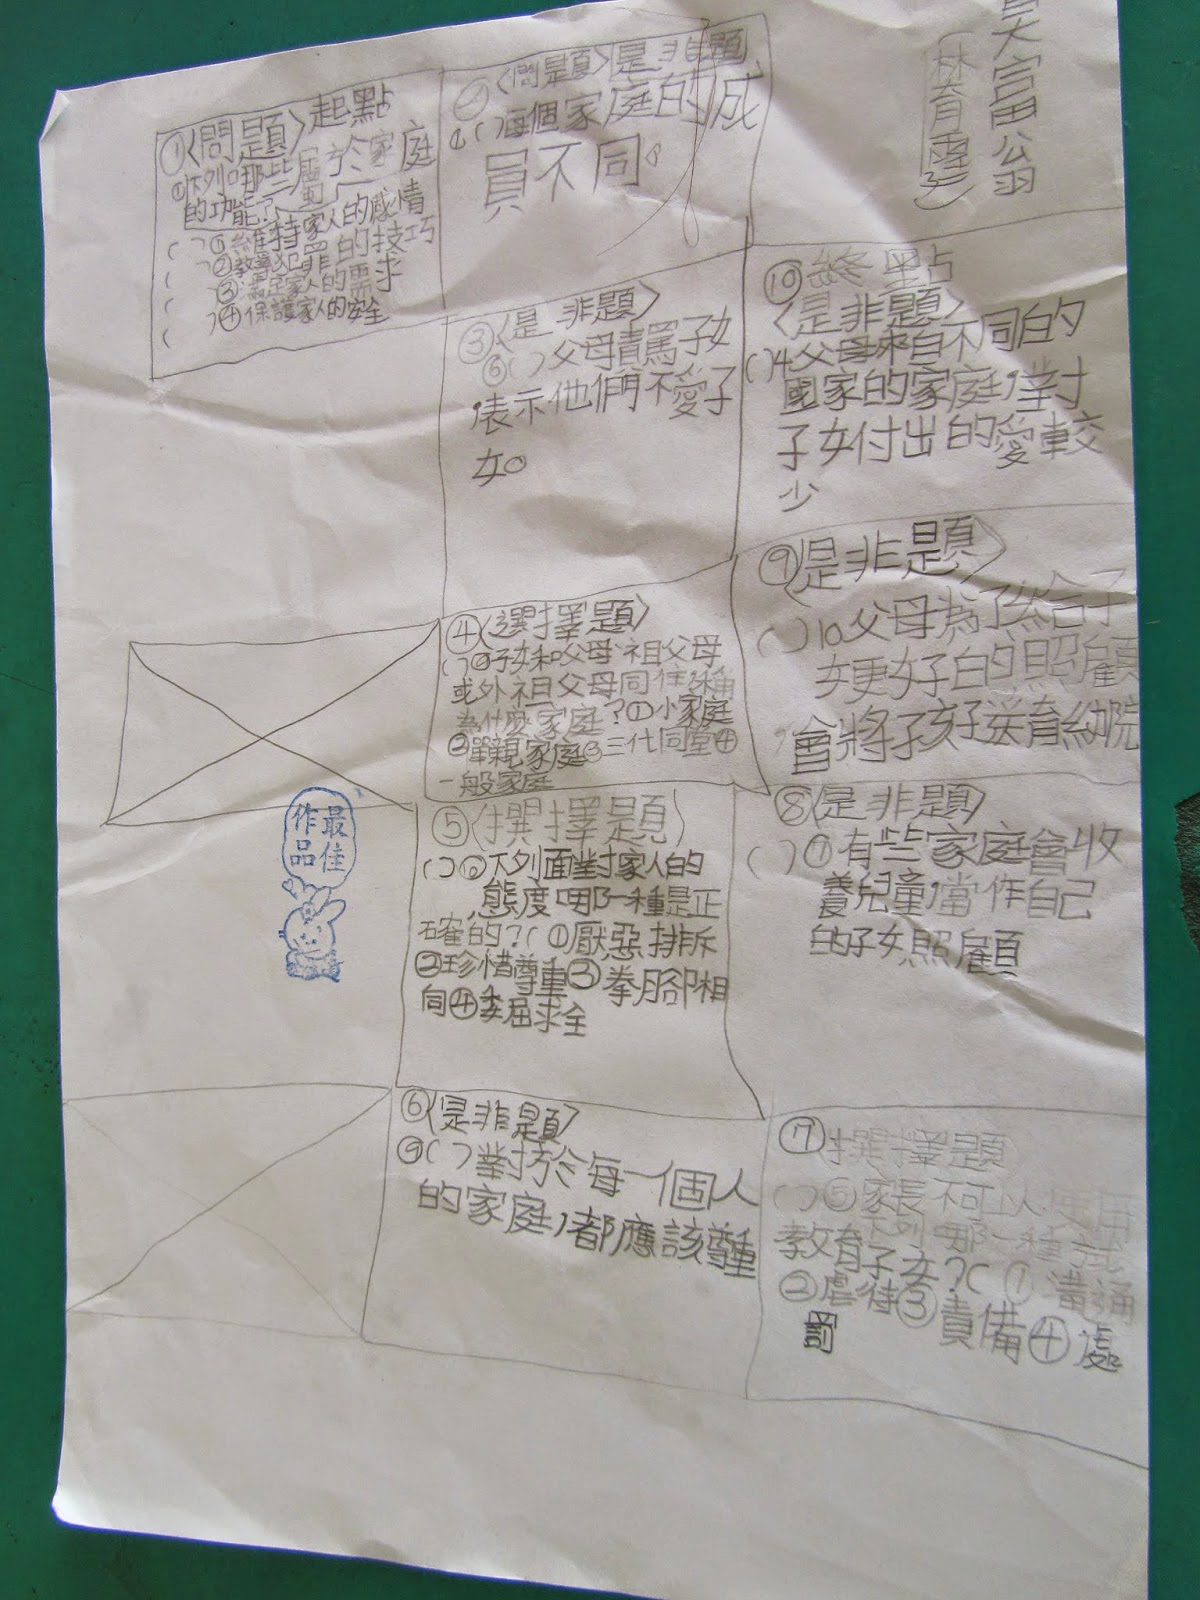 大富公羽
①〈問題〉起點
①下列哪些屬於家庭
的功能?
( )①維持家人的感情
( )②教導犯罪的技巧
( )③滿足家人的需求
( )④保護家人的安全
〈問題〉是非題
( )每個家庭的成
員不同。
③〈是非題〉
⑥( )父母責罵子女
,表示他們不愛子
女。
④〈選擇題〉
( )子女和父母、祖父母
或外祖父母同住,稱
為什麼家庭?①小家庭
②單親家庭③三代同堂④
一般家庭
⑤〈撰擇題〉
( )⑥下列面對家人的
態度哪一種是正
確的?(①厭惡排斥
②珍惜尊重③拳腳相
向④委屈求全
⑥〈是非題〉
⑨( )對於每一個人
的家庭,都應該尊重
⑦撰擇題
( )⑤家長不可以使用
下列哪一種方式
教育子女?(①溝通
②虐待③責備④處
罰
⑧〈是非題〉
( )⑦有些家庭會收
養兒童,當作自己
的子女照顧
⑨〈是非題〉
( )10父母為了給子
女更好的照顧
,會將子孩子送育幼院
⑩終點
〈是非題〉
( )4父母來自不同的
國家的家庭,對
子女付出的愛較
少
最佳
作品